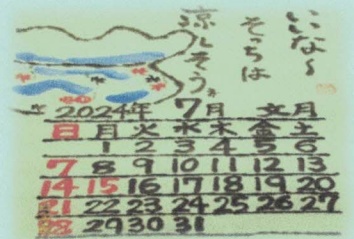 いいな～
そっちは
涼しそう。
2024年 7月 文月
日 月 火 水 木 金 土
1 2 3 4 5 6
7 8 9 10 11 12 13
14 15 16 17 18 19 20
21 22 23 24 25 26 27
28 29 30 31